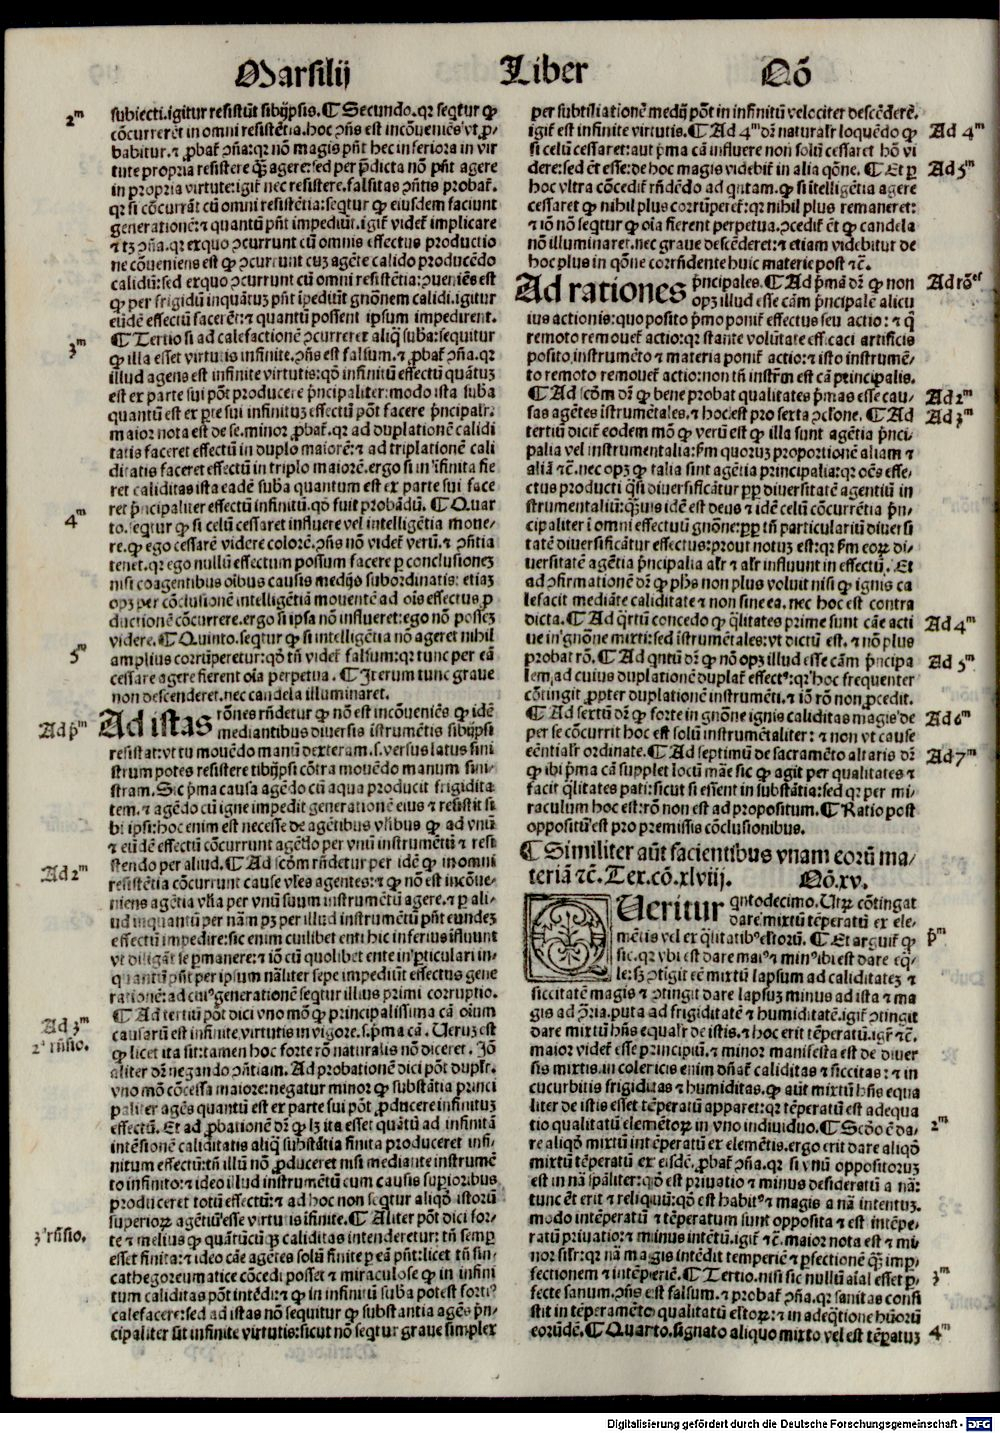 Marsilij Liber Nõ
subiecti.igitur resistũt sibijpsis.¶ Secundo.qꝛ seq̃tur ꝙ
cõcurrerẽt in omni resistẽtia.hoc ꝯñs est incõueniẽs vt ꝓ⸗
babitur.⁊ ꝓbat̃ ꝯña:qꝛ nõ magis pñt hec inferiora in vir
tute propria resistere q̃ʒ agere:sed per p̃dicta nõ pñt agere
in propria virtute:igit̃ nec resistere.falsitas ꝯñtis probat̃.
qꝛ si cõcurrãt cũ omni resistẽtia:seq̃tur ꝙ eiusdem faciunt
generationẽ:⁊ quantũ pñt impediũt.igit̃ videt̃ implicare
⁊ tʒ ꝯña.qꝛ exquo ꝯcurrunt cũ omnis effectus productio
ne cõueniens est ꝙ ꝯcurrunt cuʒ agẽte calido producẽdo
calidũ:sed exquo ꝯcurrunt cũ omni resistẽtia:ꝯueniẽs est
ꝙ per frigidũ inquãtuʒ pñt ĩpediũt gñonẽm calidi.igitur
eũdẽ effectũ facerẽt:⁊ quantũ possent ipsum impedirent.
¶ Tertio si ad calefactionẽ ꝯcurreret aliq̃ suba:sequitur
ꝙ illa esset virtutis infinite.ꝯñs est falsum.⁊ ꝓbat̃ ꝯña.qꝛ
illud agens est infinite virtutis:qõ infinitũ effectũ quãtuʒ
est ex parte sui põt producere p̃ncipaliter:modo ista suba
quantũ est ex ꝑte sui infinituʒ effectũ põt facere p̃ncipalr̃.
maior nota est de se.minor ꝓbat̃.qꝛ ad duplationẽ calidi
tatis faceret effectũ in duplo maiorẽ:⁊ ad triplationẽ cali
ditatis faceret effectũ in triplo maiorẽ.ergo si in ĩfinita fie
ret caliditas ista eadẽ suba quantum est ex parte sui face
ret p̃ncipaliter effectũ infinitũ.qõ fuit probãdũ. ¶ Quar
to.seq̃tur ꝙ si celũ cessaret influere vel intelligẽtia moue⸗
re.ꝙ ego cessarẽ videre colorẽ.ꝯñs nõ videt̃ verũ.⁊ ꝯñtia
tenet.qꝛ ego nullũ effectum possum facere ꝑ conclusioneʒ
nisi coagentibus oĩbus causis medijs subordinatis: etiaʒ
opʒ per cõclusionẽ intelligẽtiã mouentẽ ad oĩs effectus ꝓ
ductionẽ cõcurrere.ergo si ipsa nõ influeret:ego nõ posseʒ
videre.¶ Quinto.seq̃tur ꝙ si intelligẽtia nõ ageret nihil
amplius corrũperetur:qõ tñ videt̃ falsum:qꝛ tunc per eã
cessare agere fierent oĩa perpetua. ¶ Iterum tunc graue
non descenderet.nec candela illuminaret.
Ad istas rõnes rñdetur ꝙ nõ est incõueniẽs ꝙ idẽ
mediantibus diuersis ĩstrumẽtis sibijpsi
resistat:vt tu mouẽdo manũ dexteram.s.versus latus sini
strum potes resistere tibijpsi cõtra mouẽdo manum sini⸗
stram.Sic p̃ma causa agẽdo cũ aqua producit frigidita
tem.⁊ agẽdo cũ igne impedit generationẽ eius ⁊ resistit si
bi ipsi:hoc enim est necesse de agẽtibus vl̃ibus ꝙ ad vnũ
⁊ eũdẽ effectũ cõcurrunt agẽdo per vnũ instrumẽtũ ⁊ resi
stendo per aliud.¶ Ad scõm rñdetur per idẽ ꝙ in omni
resistẽtia cõcurrunt cause vl̃es agentes:⁊ ꝙ nõ est incõue⸗
niens agẽtia vl̃ia per vnũ suum instrumẽtũ agere.⁊ ꝑ ali⸗
ud inquantũ per nãm pʒ per illud instrumẽtũ pñt eundeʒ
effectũ impedire:sic enim cuilibet enti hic inferius ĩfluunt
vt diligãt se ꝑmanere:⁊ iõ cũ quolibet ente in ꝑticulari in⸗
quantũ pñt per ipsum nãliter sepe impediũt effectus gene
rationẽ:ad cuiꝰ generationẽ seq̃tur illius primi corruptio.
¶ Ad tertiũ põt dici vno mõ ꝙ principalissima cã oĩum
causarũ est infinite virtutis in vigore.s.p̃ma cã. Veruʒ est
ꝙ licet ita sit:tamen hoc forte rõ naturalis nõ diceret. Iõ
aliter dꝛ̃ negando ꝯñtiam. Ad probationẽ dici põt duplr̃.
vno mõ cõcessa maiore:negatur minor ꝙ substãtia princi
paliter agẽs quantũ est ex parte sui põt ꝓducere infinituʒ
effectũ. Et ad ꝓbationẽ dꝛ̃ ꝙ lʒ ita esset quãtũ ad infinitã
intẽsionẽ caliditatis aliq̃ substãtia finita produceret infi⸗
nitum effectũ:tñ illũ nõ ꝓduceret nisi mediante instrumẽ
to infinito:⁊ ideo illud instrumẽtũ cum causis supioribus
produceret totũ effectũ:⁊ ad hoc non seq̃tur aliqõ istorũ
superioꝝ agẽtiũ esse virtutis ĩfinite.¶ Aliter põt dici for⸗
te ⁊ melius ꝙ quãtũcũqʒ caliditas intenderetur: tñ semꝑ
esset finita:⁊ ideo cãe agẽtes solũ finite ꝑ eã pñt:licet tñ sin⸗
cathegoreumatice cõcedi posset ⁊ miraculose ꝙ in infini
tum caliditas põt intẽdi:⁊ ꝙ in infinitũ suba potest fortiꝰ
calefacere:sed ad istas nõ sequitur ꝙ substantia agẽs p̃n⸗
cipaliter sit infinite virtutis:sicut nõ seq̃tur graue simplex
per subtiliationẽ medij põt in infinitũ velociter descẽderẽ.
igit̃ est infinite virtutis.¶ Ad 4ᵐ dꝛ̃ naturalr̃ loquẽdo ꝙ
si celũ cessaret:aut p̃ma cã influere non solũ cessaret hõ vi
dere:sed ẽt esse:de hoc magis videbit̃ in alia qõne. ¶ Et ꝑ
hoc vltra cõcedit̃ rñdẽdo ad qntam.ꝙ si ĩtelligẽtia agere
cessaret ꝙ nihil plus corrũperet̃:qꝛ nihil plus remaneret:
⁊ iõ nõ seq̃tur ꝙ oĩa fierent perpetua.ꝯcedit̃ ẽt ꝙ candela
nõ illuminaret.nec graue descẽderet:⁊ etiam videbitur de
hoc plus in qõne corrñdente huic materie post ⁊c̃.
Ad rationes p̃ncipales.¶ Ad p̃mã dꝛ̃ ꝙ non
opʒ illud esse cãm p̃ncipalẽ alicu
ius actionis:quo posito p̃mo ponit̃ effectus seu actio: ⁊ q̃
remoto remouet̃ actio:qꝛ stante volũtate efficaci artificis
posito instrumẽto ⁊ materia ponit̃ actio:⁊ isto instrumẽ⸗
to remoto remouet̃ actio:non tñ instrm̃ est cã principalis.
¶ Ad scõm dꝛ̃ ꝙ bene probat qualitates p̃mas esse cau⸗
sas agẽtes ĩstrumẽtales.⁊ hoc est pro sexta ꝯcl̃one. ¶ Ad
tertiũ dicit̃ eodem mõ ꝙ verũ est ꝙ illa sunt agẽtia p̃nci⸗
palia vel instrumentalia:p̃m quoruʒ proportionẽ aliam ⁊
aliã ⁊c̃.nec opʒ ꝙ talia sint agẽtia principalia:qꝛ oẽs effe⸗
ctus producti q̃si diuersificãtur pp̃ diuersitatẽ agentiũ in
strumentaliũ:q̃uis idẽ est deus ⁊ idẽ celũ cõcurrẽtia p̃n⸗
cipaliter ĩ omni effectuũ gñone:pp̃ tñ particulariũ diuersi
tatẽ diuersificãtur effectus:prout notuʒ est:qꝛ p̃m eoꝝ di⸗
uersitatẽ agẽtia p̃ncipalia alr̃ ⁊ alr̃ influunt in effectũ. Et
ad ꝯfirmationẽ dꝛ̃ ꝙ ph̃s non plus voluit nisi ꝙ ignis ca
lefacit mediãte caliditate ⁊ non sine ea. nec hoc est contra
dicta.¶ Ad q̃rtũ concedo ꝙ q̃litates prime sunt cãe acti
ue in gñone mixti:sed ĩstrumẽtales:vt dictũ est. ⁊ nõ plus
probat rõ. ¶ Ad qntũ dꝛ̃ ꝙ nõ opʒ illud esse cãm p̃ncipa
lem ad cuius duplationẽ duplat̃ effectꝰ:qꝛ hoc frequenter
cõtingit ꝓpter duplationẽ instrumẽti.⁊ iõ rõ non ꝓcedit.
¶ Ad sextũ dꝛ̃ ꝙ forte in gñone ignis caliditas magis de
per se cõcurrit hoc est solũ instrumẽtaliter: ⁊ non vt cause
eẽntialr̃ ordinate.¶ Ad septimũ de sacramẽto altaris dꝛ̃
ꝙ ibi p̃ma cã supplet locũ mãe sic ꝙ agit per qualitates ⁊
facit q̃litates pati:sicut si essent in substãtia:sed qꝛ per mi⸗
raculum hoc est:rõ non est ad propositum.¶ Ratio post
oppositũ est pro premissis cõclusionibus.
¶ Similiter aũt facientibus vnam eorũ ma⸗
teriã ⁊c̃. Tex.cõ.xlviij. Nõ.xv.
Queritur qntodecimo.Utꝝ cõtingat
dare mixtũ tẽperatũ ex ele⸗
mẽtis vel ex q̃litatibꝰ eĩoꝝ. ¶ Et arguit̃ ꝙ
sic.qꝛ vbi est dare maiꝰ ⁊ minꝰ ibi est dare eq̃⸗
le:sʒ ꝯtigit eẽ mixtũ lapsum ad caliditateʒ ⁊
siccitatẽ magis ⁊ ꝯtingit dare lapsuʒ minus ad ista ⁊ ma
gis ad ꝯ̃ria.puta ad frigiditatẽ ⁊ humiditatẽ.igit̃ ꝯtingit
dare mixtũ hñs equalr̃ de istis.⁊ hoc erit tẽperatũ.igr̃ ⁊c̃.
maior videt̃ esse principiũ.⁊ minor manifesta est de diuer
sis mixtis.in colericis enim dñat̃ caliditas ⁊ siccitas: ⁊ in
cucurbitis frigiditas ⁊ humiditas.ꝙ aũt mixtũ hñs equa
liter de istis esset tẽperatũ apparet:qꝛ tẽperatũ est adequa
tio qualitatũ elemẽtoꝝ in vno indiuiduo.¶ Scõo ẽ da⸗
re aliqõ mixtũ intẽperatũ ex elemẽtis.ergo erit dare aliqõ
mixtũ tẽperatũ ex eisdẽ.ꝓbat̃ ꝯña.qꝛ si vnũ oppositoruʒ
est in nã ĩpaliter:qõ est priuatio ⁊ minus desideratũ a nã:
tunc ẽt erit ⁊ reliquũ:qõ est habitꝰ ⁊ magis a nã intentuʒ.
modo intẽperatũ ⁊ tẽperatum sunt opposita ⁊ est intẽpe⸗
ratũ priuatio:⁊ minus intẽtũ.igit̃ ⁊c̃.maior nota est ⁊ mi
nor sil̃r:qꝛ nã magis intẽdit temperiẽ ⁊ ꝑfectionẽ q̃ʒ imꝑ⸗
fectionem ⁊ intẽperiẽ.¶ Tertio.nisi sic nullũ aĩal esset ꝑ⸗
fecte sanum.ꝯñs est falsum.⁊ probat̃ ꝯña.qꝛ sanitas consi
stit in tẽperamẽto qualitatũ eĩoꝝ:⁊ in adeq̃tione hũorũ
eorũdẽ.¶ Quarto.signato aliquo mixto vel est tẽꝑatuʒ
2ᵐ
3ᵐ
4ᵐ
5ᵐ
Ad p̃ᵐ
Ad 2ᵐ
Ad 3ᵐ
2ᵃ rñsio.
3ᵃ rñsio.
Ad 4ᵐ
Ad 5ᵐ
Ad rõᵉˢ
Ad 2ᵐ
Ad 3ᵐ
Ad 4ᵐ
Ad 5ᵐ
Ad 6ᵐ
Ad 7ᵐ
p̃ᵐ
2ᵐ
3ᵐ
4ᵐ
Digitalisierung gefördert durch die Deutsche Forschungsgemeinschaft - DFG